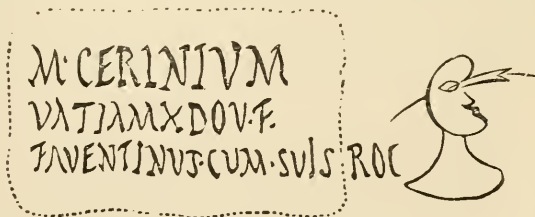 M·CERINIVM
VATIAMXDOV·F·
FAVENTINVS·CVM·SVIS ROC